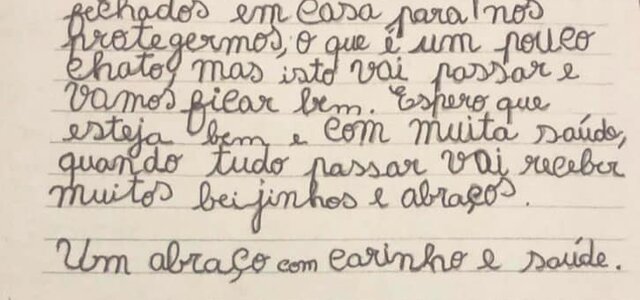 fechados em casa para nos
protegermos, o que é um pouco
chato, mas isto vai passar e
vamos ficar bem. Espero que
esteja bem e com muita saúde,
quando tudo passar vai receber
muitos beijinhos e abraços.
Um abraço com carinho e saúde.